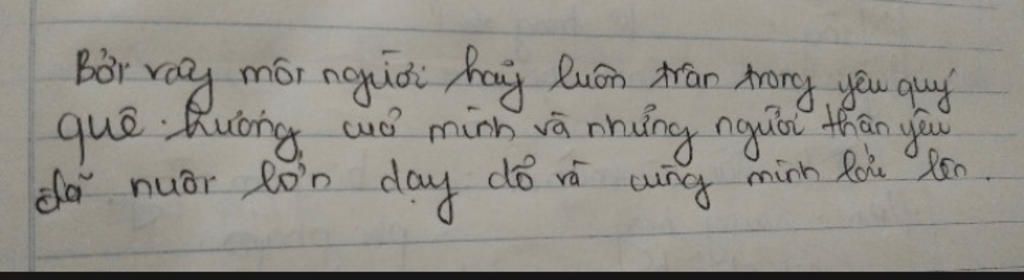 Bởi vậy mỗi người hãy luôn trân trọng yêu quý
quê hương cuả mình và những người thân yêu
đã nuôi lớn dạy dỗ và cùng mình lớn lên.